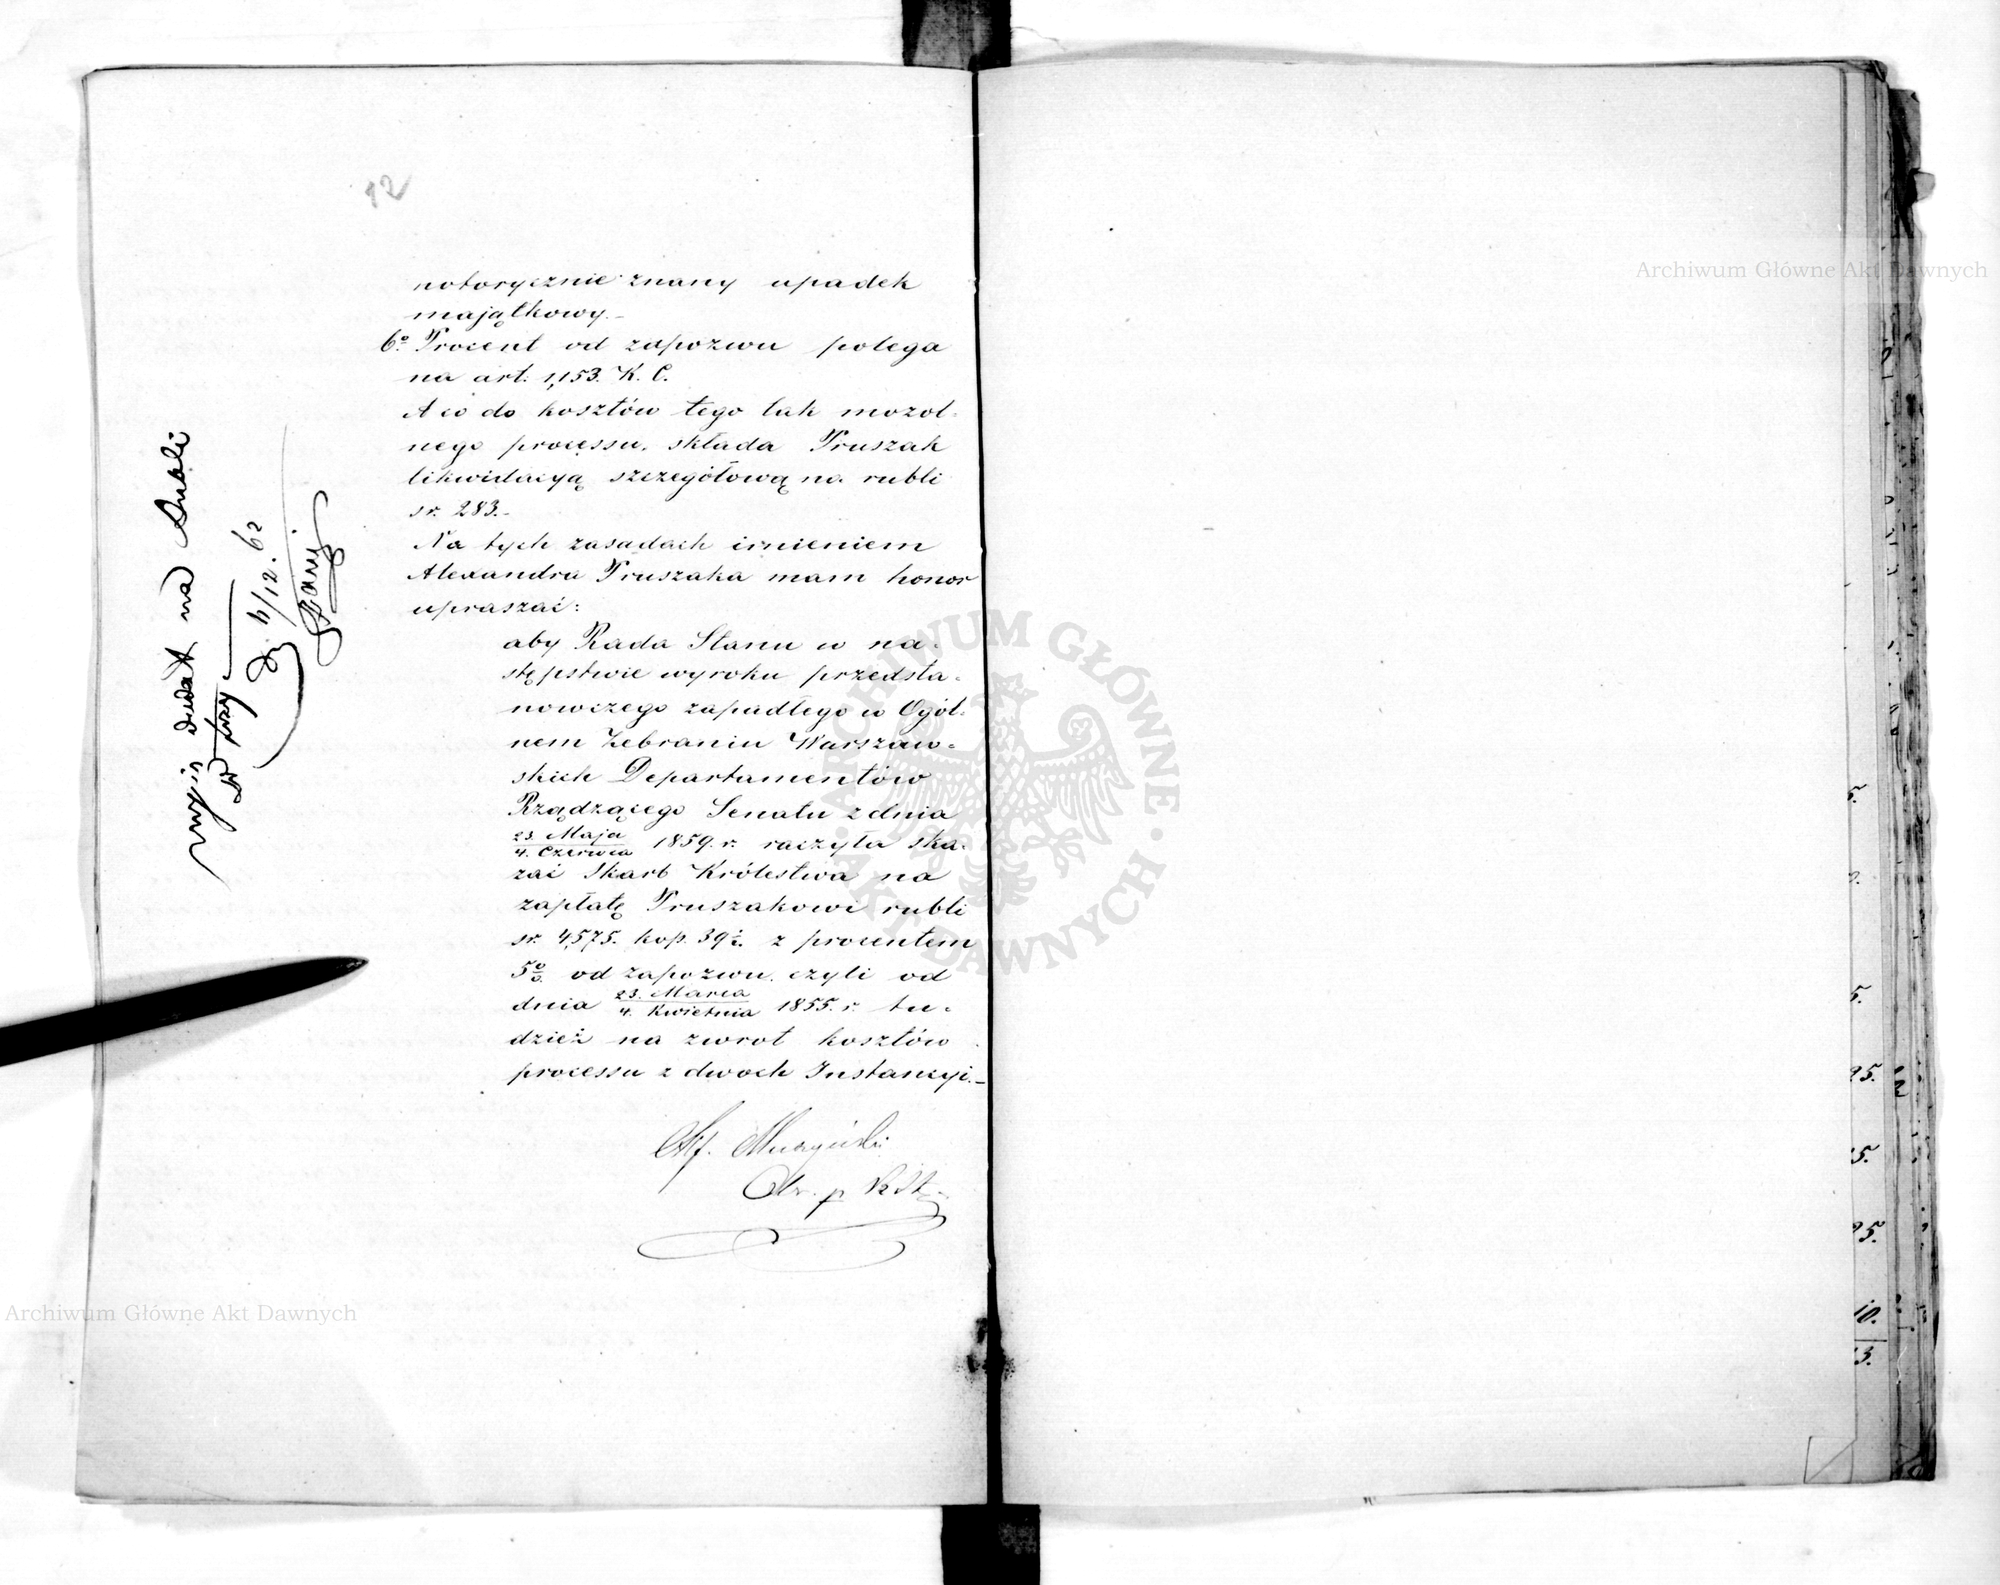 12
notorycznie znany upadek
majątkowy.-
6o. Procent od zapozwu polega
na art: 1,153. K. C.
A co do kosztów tego tak mozol-
nego processu, składa Pruszak
likwidacyą szczegółową na rubli
sr. 283.-
Na tych zasadach imieniem
Alexandra Pruszaka mam honor
upraszać:
aby Rada Stanu w na-
stępstwie wyroku przedsta-
nowczego zapadłego w Ogól-
nem Zebraniu Warszaw-
skich Departamentów
Rządzącego Senatu z dnia
23. Maja / 4. Czerwca 1859. r. raczyła ska-
zać Skarb Królestwa na
zapłatę Pruszakowi rubli
sr. 4,575. kop. 39½. z procentem
5%. od zapozwu, czyli od
dnia 23. Marca / 4. Kwietnia 1855. r. tu-
dzież na zwrot kosztów
processu z dwóch Instancyi.-
na Rubli
d. 4/12. 62
Archiwum Główne Akt Dawnych
Archiwum Główne Akt Dawnych
ARCHIWUM GŁÓWNE · AKT DAWNYCH ·
5.
5.
95.
5.
95.
10.
3.